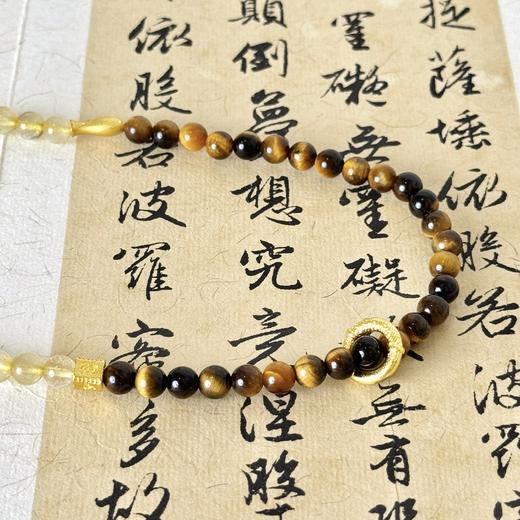 提薩埵依般若波羅
罣礙無罣礙無有
顛倒夢想究竟涅
依般若波羅蜜多故